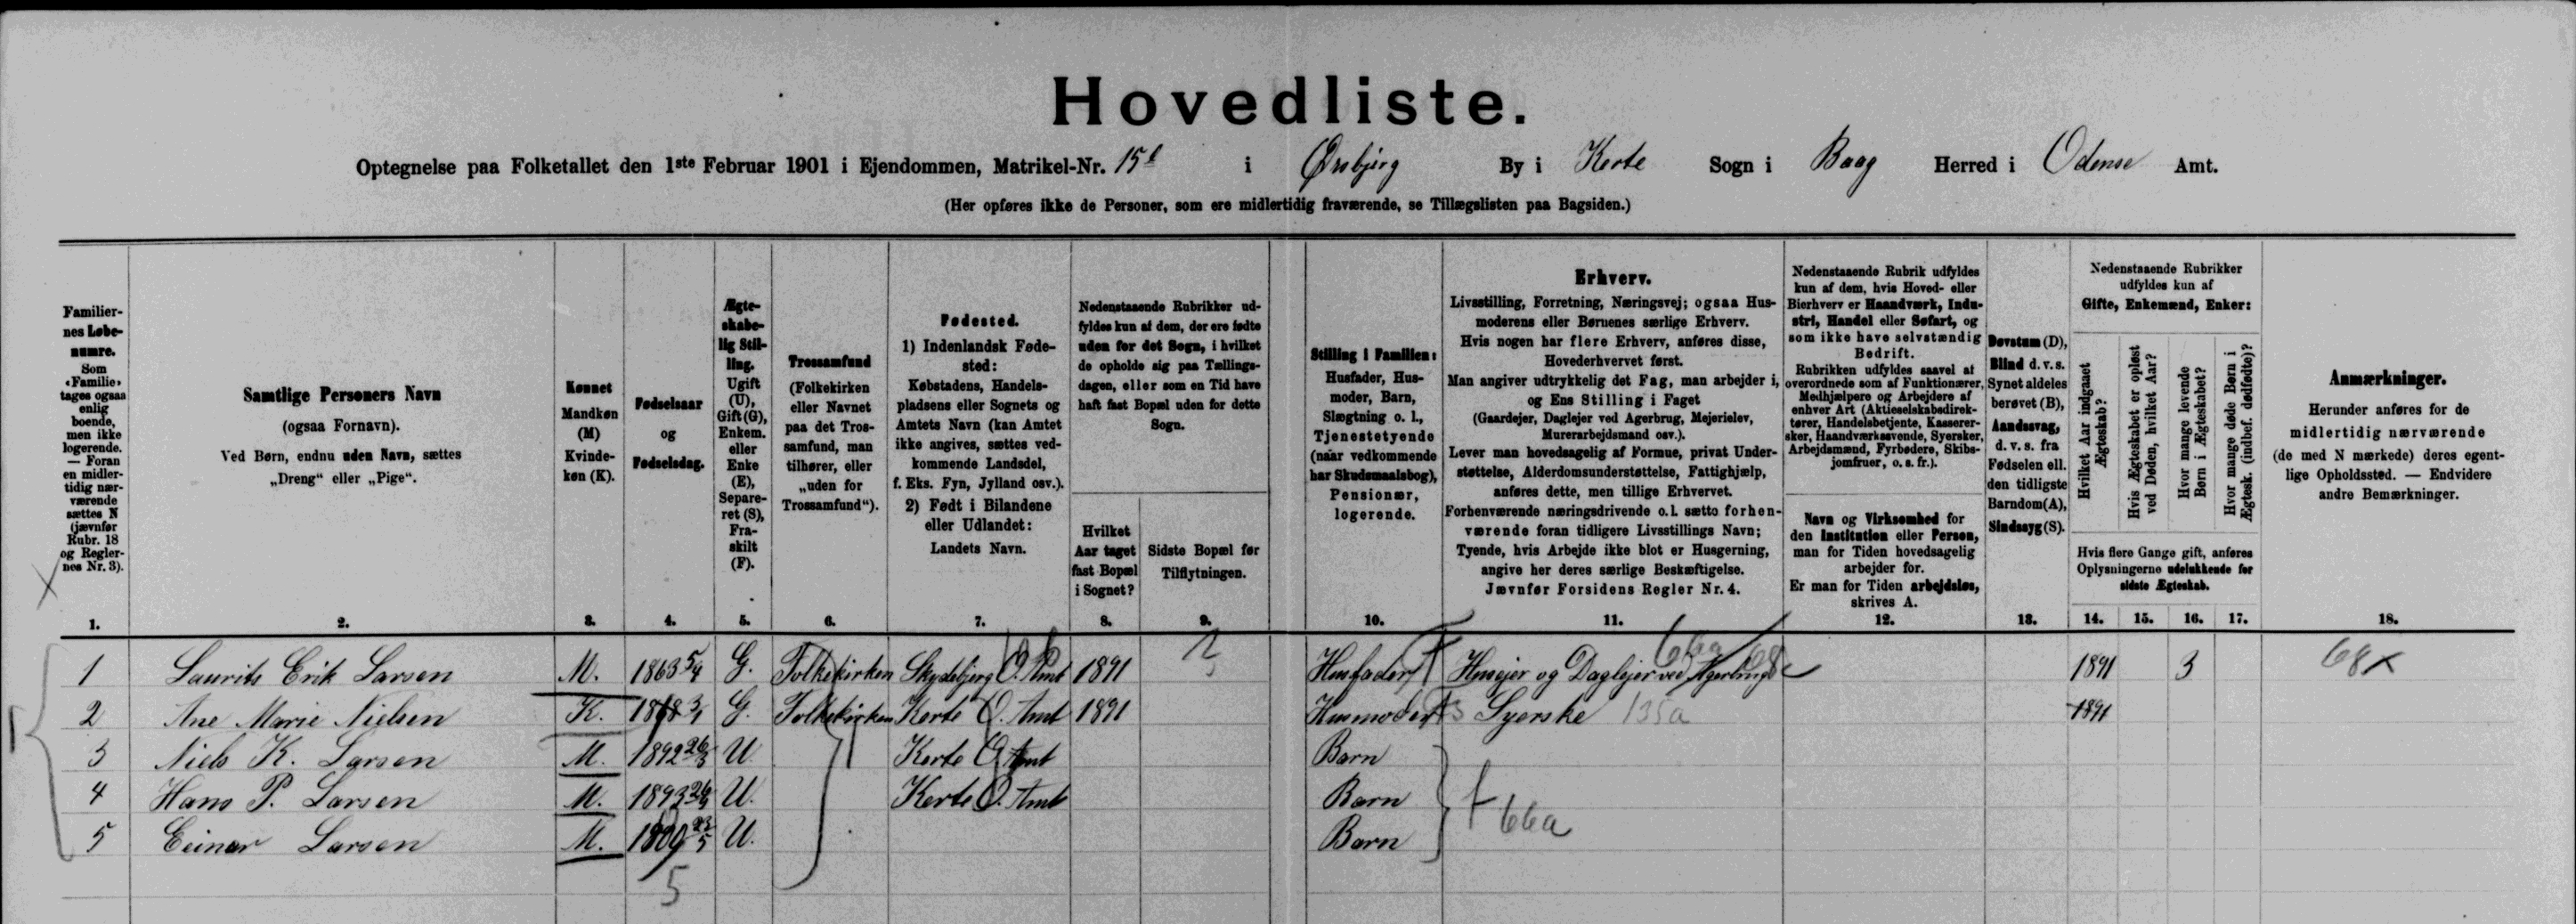 Hovedliste.
Optegnelse paa Folketallet den 1ste Februar 1901 i Ejendommen, Matrikel-Nr. 15 i Ørsbjerg By i Kerte Sogn i Baag Herred i Odense Amt.
(Her opføres ikke de Personer, som ere midlertidig fraværende, se Tillægslisten paa Bagsiden.)
Familier-
nes Løbe-
numre.
Som
«Familie»
tages ogsaa
enlig
boende,
men ikke
logerende.
— Foran
en midler-
tidig nær-
værende
sættes N
(jævnfør
Rubr. 18
og Regler-
nes Nr. 3).
1.
Samtlige Personers Navn
(ogsaa Fornavn).
Ved Børn, endnu uden Navn, sættes
„Dreng“ eller „Pige“.
2.
Kønnet
Mandkøn
(M)
Kvinde-
køn (K).
3.
Fødselsaar
og
Fødselsdag.
4.
Ægte-
skabe-
lig Stil-
ling.
Ugift
(U),
Gift (G),
Enkem.
eller
Enke
(E),
Separe-
ret (S),
Fra-
skilt
(F).
5.
Trossamfund
(Folkekirken
eller Navnet
paa det Tros-
samfund, man
tilhører, eller
„uden for
Trossamfund“).
6.
Fødested.
1) Indenlandsk Føde-
sted:
Købstadens, Handels-
pladsens eller Sognets og
Amtets Navn (kan Amtet
ikke angives, sættes ved-
kommende Landsdel,
f. Eks. Fyn, Jylland osv.).
2) Født i Bilandene
eller Udlandet:
Landets Navn.
7.
Nedenstaaende Rubrikker ud-
fyldes kun af dem, der ere fødte
uden for det Sogn, i hvilket
de opholde sig paa Tællings-
dagen, eller som en Tid have
haft fast Bopæl uden for dette
Sogn.
Hvilket
Aar taget
fast Bopæl
i Sognet?
8.
Sidste Bopæl før
Tilflytningen.
9.
Stilling i Familien:
Husfader, Hus-
moder, Barn,
Slægtning o. l.,
Tjenestetyende
(naar vedkommende
har Skudsmaalsbog),
Pensionær,
logerende.
10.
Erhverv.
Livsstilling, Forretning, Næringsvej; ogsaa Hus-
moderens eller Børnenes særlige Erhverv.
Hvis nogen har flere Erhverv, anføres disse,
Hovederhvervet først.
Man angiver udtrykkelig det Fag, man arbejder i,
og Ens Stilling i Faget
(Gaardejer, Daglejer ved Agerbrug, Mejerielev,
Murerarbejdsmand osv.).
Lever man hovedsagelig af Formue, privat Under-
støttelse, Alderdomsunderstøttelse, Fattighjælp,
anføres dette, men tillige Erhvervet.
Forhenværende næringsdrivende o.l. sætte forhen-
værende foran tidligere Livsstillings Navn;
Tyende, hvis Arbejde ikke blot er Husgerning,
angive her deres særlige Beskæftigelse.
Jævnfør Forsidens Regler Nr. 4.
11.
Nedenstaaende Rubrik udfyldes
kun af dem, hvis Hoved- eller
Bierhverv er Haandværk, Indu-
stri, Handel eller Søfart, og
som ikke have selvstændig
Bedrift.
Rubrikken udfyldes saavel af
overordnede som af Funktionærer,
Medhjælpere og Arbejdere af
enhver Art (Aktieselskabsdirek-
tører, Handelsbetjente, Kasserer-
sker, Haandværkssvende, Syersker,
Arbejdsmænd, Fyrbødere, Skibs-
jomfruer, o. s. fr.).
Navn og Virksomhed for
den Institution eller Person,
man for Tiden hovedsagelig
arbejder for.
Er man for Tiden arbejdsløs,
skrives A.
12.
Døvstum (D),
Blind d. v. s.
Synet aldeles
berøvet (B),
Aandssvag,
d. v. s. fra
Fødselen ell.
den tidligste
Barndom (A),
Sindssyg (S).
13.
Nedenstaaende Rubrikker
udfyldes kun af
Gifte, Enkemænd, Enker:
Hvilket Aar indgaaet
Ægteskab?
Hvis Ægteskabet er opløst
ved Døden, hvilket Aar?
Hvor mange levende
Børn i Ægteskabet?
Hvor mange døde Børn i
Ægtesk. (indbef. dødfødte)?
Hvis flere Gange gift, anføres
Oplysningerne udelukkende for
sidste Ægteskab.
14. 15. 16. 17.
Anmærkninger.
Herunder anføres for de
midlertidig nærværende
(de med N mærkede) deres egent-
lige Opholdssted. — Endvidere
andre Bemærkninger.
18.
1 Laurits Erik Larsen M. 1863 5/4 G. Folkekirken Skydebjerg O. Amt 1891 Husfader Husejer og Daglejer ved Agerbrug 66a 68 1891 3 68x
2 Ane Marie Nielsen K. G. Folkekirken Kerte O. Amt 1891 Husmoder Syerske 135a 1891
3 Niels K. Larsen M. 1892 26/3 U Kerte O. Amt Barn
4 Hans P. Larsen M. 1893 U. Kerte O. Amt Barn
5 Einar Larsen M. 23/5 U. Barn
66a
5